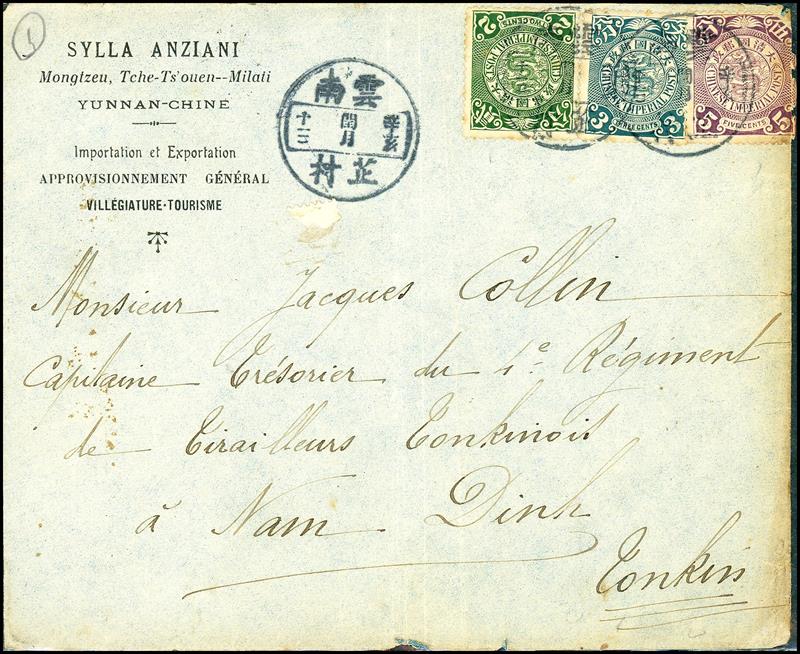 1
SYLLA ANZIANI
Mongtzeu, Tche-Ts'ouen--Milati
YUNNAN-CHINE
Importation et Exportation
APPROVISIONNEMENT GÉNÉRAL
VILLÉGIATURE-TOURISME
雲南
辛亥
閏月
十三
芷村
2 2
TWO CENTS
CHINESE IMPERIAL POST
大清國郵政
CHINESE IMPERIAL POST
3 3
THREE CENTS
大清國郵政
CHINESE IMPERIAL POST
5 5
FIVE CENTS
Monsieur Jacques Collin
Capitaine Trésorier du 1e Régiment
de Tirailleurs Tonkinois
à Nam Dinh
Tonkin